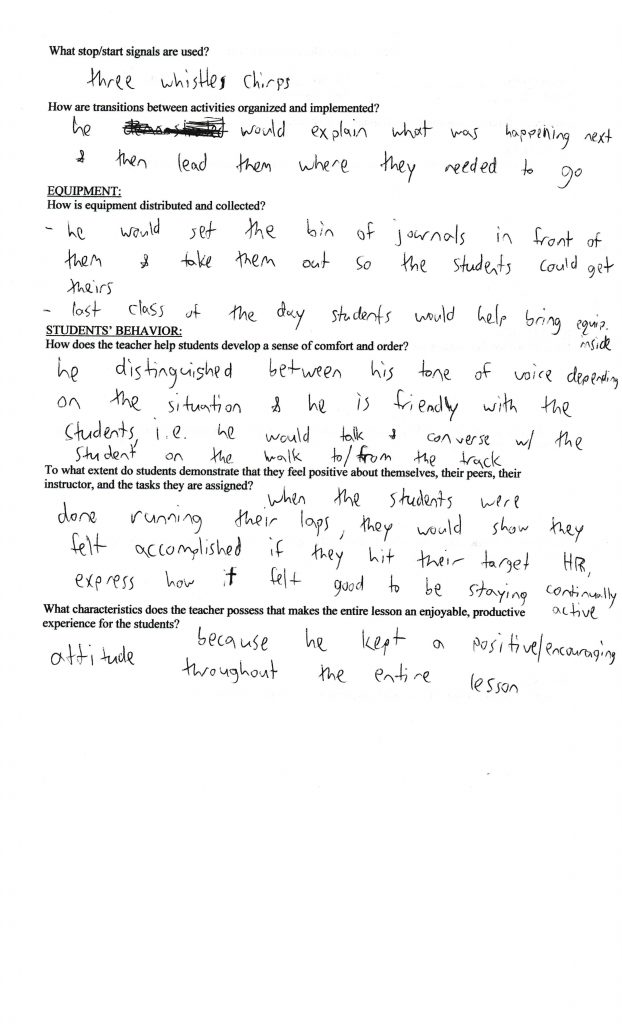 What stop/start signals are used?
three whistles chirps
How are transitions between activities organized and implemented?
he would explain what was happening next
& then lead them where they needed to go
EQUIPMENT:
How is equipment distributed and collected?
- he would set the bin of journals in front of
them & take them out so the students could get
theirs
- last class of the day students would help bring equip.
inside
STUDENTS' BEHAVIOR:
How does the teacher help students develop a sense of comfort and order?
he distinguished between his tone of voice depending
on the situation & he is friendly with the
students, i.e. he would talk & converse w/ the
student on the walk to/from the track
To what extent do students demonstrate that they feel positive about themselves, their peers, their
instructor, and the tasks they are assigned?
when the students were
done running their laps, they would show they
felt accomplished if they hit their target HR,
express how it felt good to be staying continually
active
What characteristics does the teacher possess that makes the entire lesson an enjoyable, productive
experience for the students?
because he kept a positive/encouraging
attitude throughout the entire lesson